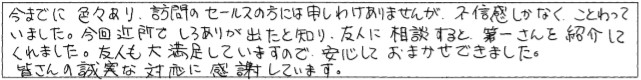 今までに 色々あり、訪問のセールスの方には申しわけありませんが、不信感しかなく、ことわって
いました。今回近所で しろありが出たと知り、友人に 相談すると、第一さんを紹介して
くれました。友人も大満足していますので、安心して おまかせできました。
皆さんの誠実な対応に感謝しています。